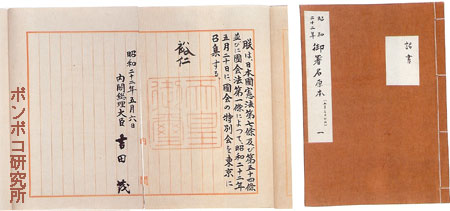 朕は日本國憲法第七條及び第五十四條
並びに國会法第一條によつて、昭和二十二年
五月二十日に國会の特別会を東京に
召集する。
裕仁
天皇
御璽
昭和二十二年五月六日
内閣総理大臣 吉田 茂
詔書
昭和二十二年 御署名原本 一
ポンポコ研究所